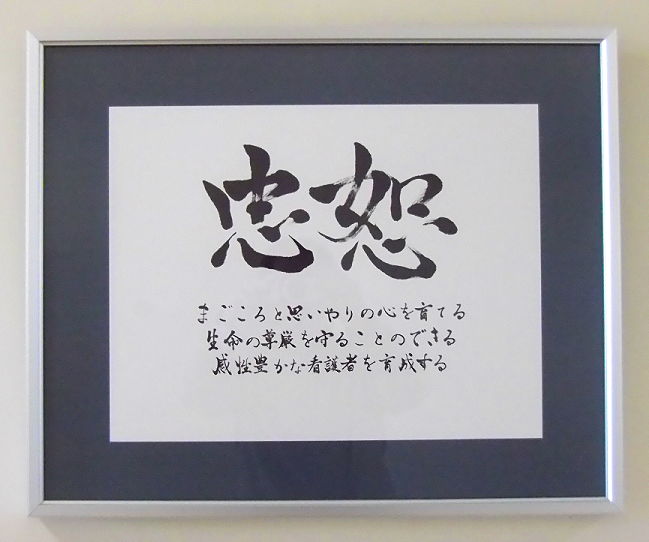 忠恕
まごころと思いやりの心を育てる
生命の尊厳を守ることのできる
感性豊かな看護者を育成する